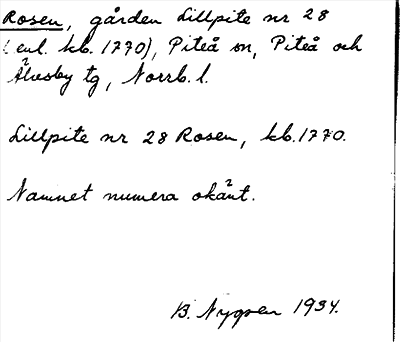 Rosen, gården Lillpite nr 28
(enl. kb. 1770), Piteå sn, Piteå och
Älvsby tg, Norrb. l.
Lillpite nr 28 Rosen, kb. 1770.
Namnet numera okänt.
B. Nygren 1934.